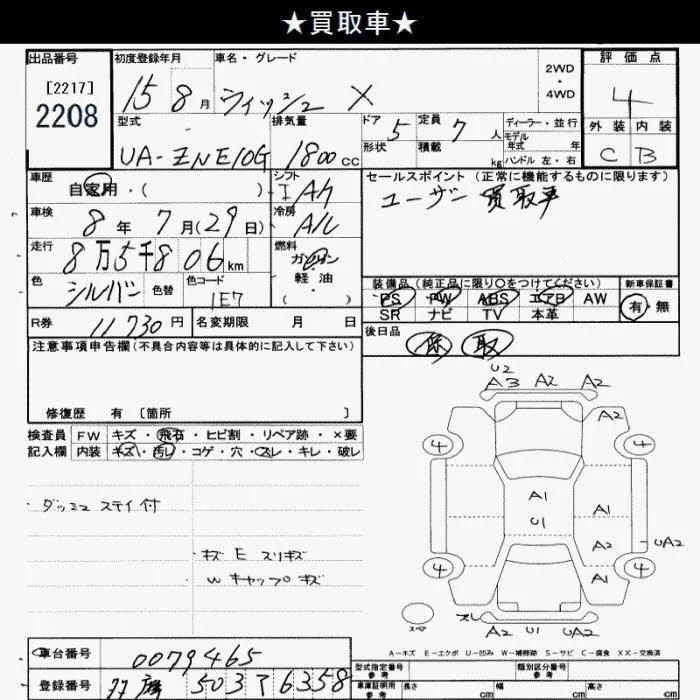 ★買取車★
出品番号 初度登録年月 車名・グレード 2WD・4WD 評価点
[2217]
2208
15年 8月 ウィッシュ X 4
型式 排気量 ドア 5 定員 7人 ディーラー・並行 外装 内装
形状 積載 kg モデル年式 年
ハンドル 左・右
UA-ZNE10G 1800cc C B
車歴 シフト セールスポイント (正常に機能するものに限ります)
自家用・( ) IA/T ユーザー買取車
車検 冷房
8年 7月(29日) A/C
走行 燃料
8万5千806km ガソリン
軽油
( )
色 シルバー 色替 色コード 1E7
装備品(純正品に限り〇をつけてください) 新車保証書
PS PW ABS エアB AW 有・無
SR ナビ TV 本革
R券 11730円 名変期限 月 日 後日品 保 取
注意事項申告欄(不具合内容等は具体的に記入して下さい)
修復歴 有 [箇所 ]
検査員 FW キズ・飛石・ヒビ割・リペア跡・×要
記入欄 内装 キズ・汚レ・コゲ・穴・スレ・キレ・破レ
ダッシュ ステイ付
キズ E スリキズ
W キャップ キズ
U2
A3 A2 A2
A2
4 4
A1
U1
A1
A2 UA2
4 4
A1
スペア スレ
A2 U1 UA2
A-キズ E-エクボ U-凹み W-補修跡 S-サビ C-腐食 XX-交換済
車台番号 0079465
登録番号 503 7 6358
型式指定番号 類別区分番号
車庫証明用参考 長さ cm 幅 参考 cm 高さ 参考 cm